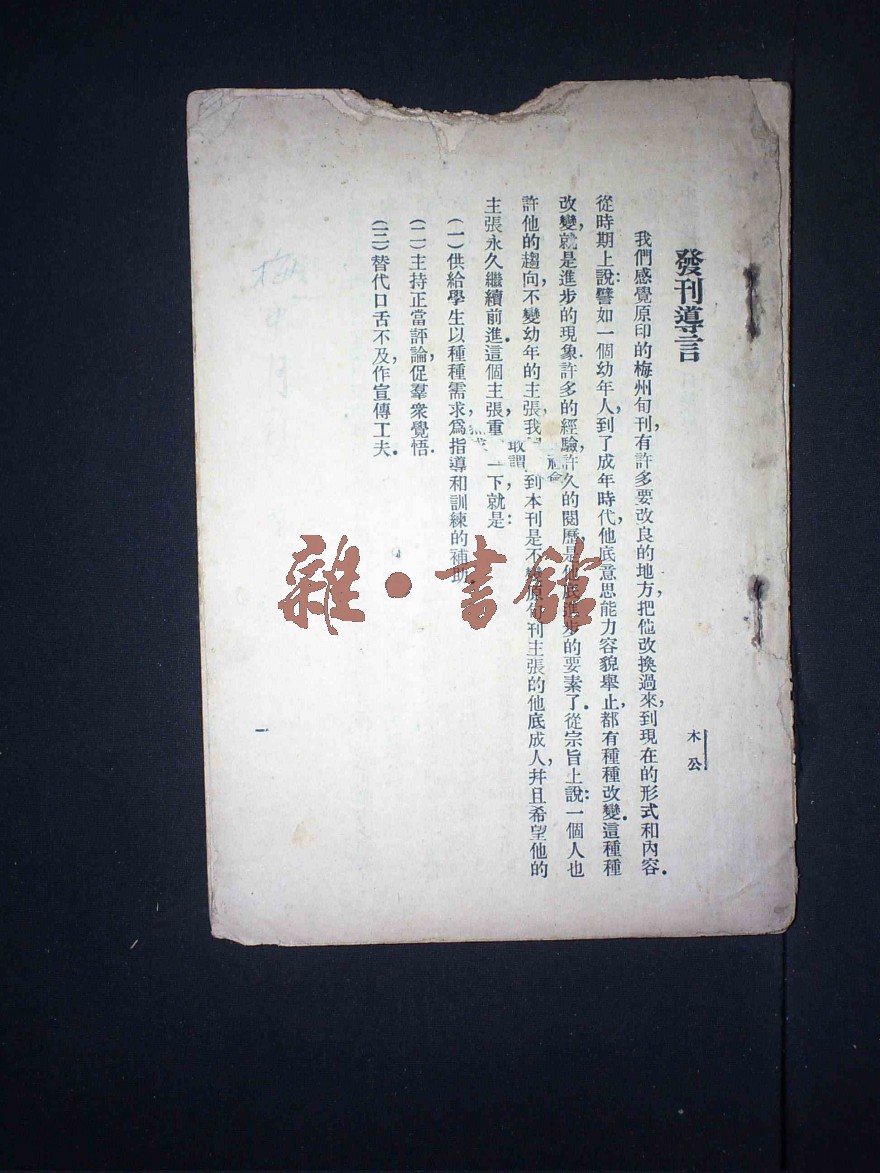 發刊導言
木公
我們感覺原印的梅州旬刊，有許多要改良的地方，把他改換過來，到現在的形式和內容．
從時期上說：譬如一個幼年人，到了成年時代，他底意思能力容貌舉止，都有種種改變．這種種
改變，就是進步的現象．許多的經驗，許久的閱歷，是他底進步的要素了．從宗旨上說：一個人也
許他的趨向，不變幼年的主張，我 到本刊是不變原旬刊主張的他底成人，幷且希望他的
敢謂
主張永久繼續前進．這個主張，重 一下，就是：
（一）供給學生以種種需求，爲指導和訓練的補助．
（二）主持正當評論，促羣衆覺悟．
（三）替代口舌不及，作宣傳工夫．
一
雜·書館